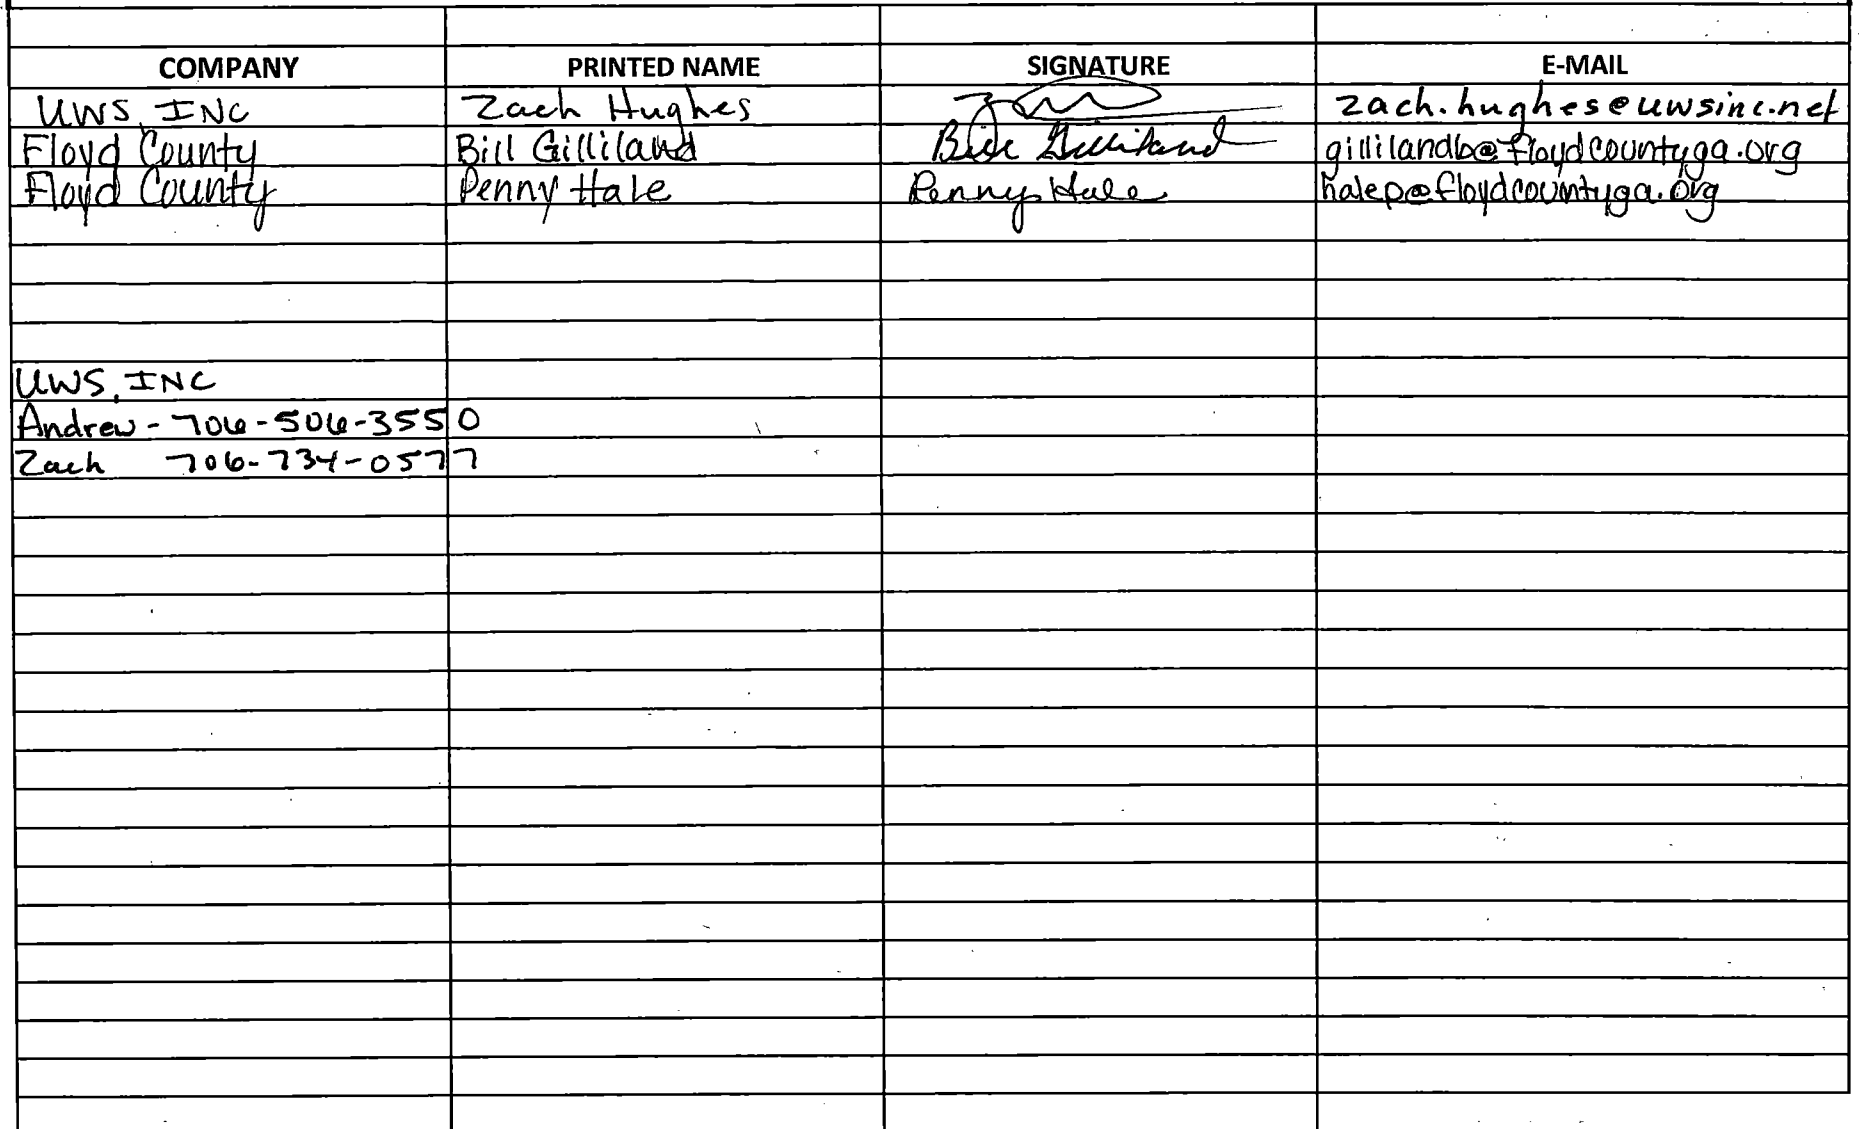 COMPANY PRINTED NAME SIGNATURE E-MAIL
UWS, INC Zach Hughes zach.hughes@uwsinc.net
Floyd County Bill Gilliland Bill Gilliland gillilandb@floydcountyga.org
Floyd County Penny Hale Penny Hale halep@floydcountyga.org
UWS, INC
Andrew - 706-506-3550
Zach 706-734-0577